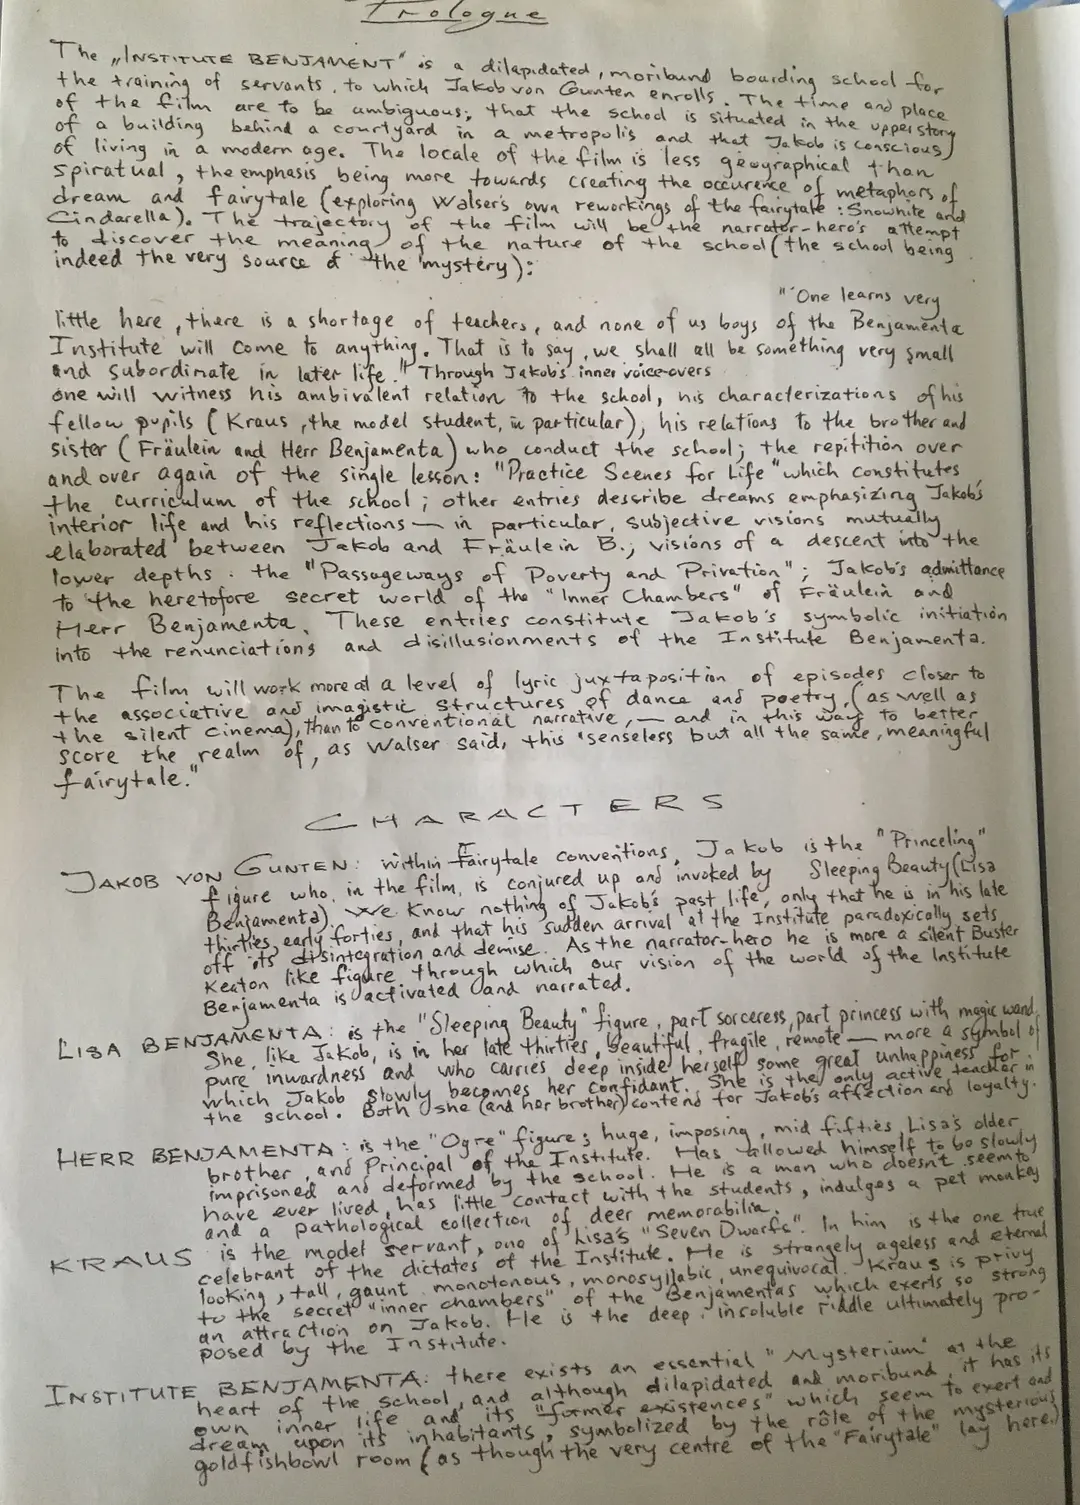 Prologue
The „INSTITUTE BENJAMENT" is a dilapidated, moribund boarding school for
the training of servants, to which Jakob von Gunten enrolls. The time and place
of the film are to be ambiguous; that the school is situated in the upper story
of a building behind a courtyard in a metropolis and that Jakob is conscious
of living in a modern age. The locale of the film is less geographical than
spiratual, the emphasis being more towards creating the occurence of metaphors of
dream and fairytale (exploring Walser's own reworkings of the fairytale: Snowhite and
Cindarella). The trajectory of the film will be the narrator-hero's attempt
to discover the meaning of the nature of the school (the school being
indeed the very source of the mystery):
"One learns very
little here, there is a shortage of teachers, and none of us boys of the Benjamenta
Institute will come to anything. That is to say, we shall all be something very small
and subordinate in later life." Through Jakob's inner voice-overs
one will witness his ambivalent relation to the school, his characterizations of his
fellow pupils (Kraus, the model student, in particular), his relations to the brother and
sister (Fräulein and Herr Benjamenta) who conduct the school; the repitition over
and over again of the single lesson: "Practice Scenes for Life" which constitutes
the curriculum of the school; other entries describe dreams emphasizing Jakob's
interior life and his reflections — in particular, subjective visions mutually
elaborated between Jakob and Fräulein B.; visions of a descent into the
lower depths: the "Passageways of Poverty and Privation"; Jakob's admittance
to the heretofore secret world of the "Inner Chambers" of Fräulein and
Herr Benjamenta. These entries constitute Jakob's symbolic initiation
into the renunciations and disillusionments of the Institute Benjamenta.
The film will work more at a level of lyric juxtaposition of episodes closer to
the associative and imagistic structures of dance and poetry, (as well as
the silent cinema), than to conventional narrative, — and in this way to better
score the realm of, as Walser said, this "senseless but all the same, meaningful
fairytale."
CHARACTERS
JAKOB VON GUNTEN: within fairytale conventions, Jakob is the "Princeling"
figure who, in the film, is conjured up and invoked by Sleeping Beauty (Lisa
Benjamenta). We know nothing of Jakob's past life, only that he is in his late
thirties, early forties, and that his sudden arrival at the Institute paradoxically sets
off its disintegration and demise. As the narrator-hero he is more a silent Buster
Keaton like figure through which our vision of the world of the Institute
Benjamenta is activated and narrated.
LISA BENJAMENTA: is the "Sleeping Beauty" figure, part sorceress, part princess with magic wand.
She, like Jakob, is in her late thirties, beautiful, fragile, remote — more a symbol of
pure inwardness and who carries deep inside herself some great unhappiness for
which Jakob slowly becomes her confidant. She is the only active teacher in
the school. Both she (and her brother) contend for Jakob's affection and loyalty.
HERR BENJAMENTA: is the "Ogre" figure; huge, imposing, mid fifties, Lisa's older
brother, and Principal of the Institute. Has allowed himself to be slowly
imprisoned and deformed by the school. He is a man who doesn't seem to
have ever lived, has little contact with the students, indulges a pet monkey
and a pathological collection of deer memorabilia.
KRAUS is the model servant, one of Lisa's "Seven Dwarfs". In him is the one true
celebrant of the dictates of the Institute. He is strangely ageless and eternal
looking, tall, gaunt, monotonous, monosyllabic, unequivocal. Kraus is privy
to the secret "inner chambers" of the Benjamentas which exerts so strong
an attraction on Jakob. He is the deep, insoluble riddle ultimately pro-
posed by the Institute.
INSTITUTE BENJAMENTA: there exists an essential "Mysterium" at the
heart of the school, and although dilapidated and moribund, it has its
own inner life and its "former existences" which seem to exert and
dream upon its inhabitants, symbolized by the rôle of the mysterious
goldfishbowl room (as though the very centre of the "Fairytale" lay here.)